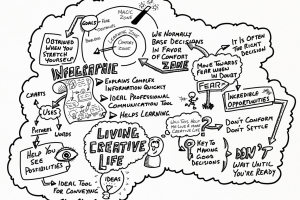 MAGIC
ZONE
GOALS
COMFORT
ZONE
OBTAINED
WHEN YOU
STRETCH
YOURSELF
WE NORMALLY
BASE DECISIONS
IN FAVOR
OF COMFORT
ZONE
IT IS OFTEN
THE RIGHT
DECISION
MOVE TOWARDS
FEAR WHEN
IN DOUBT
FEAR
INFOGRAPHIC
EXPLAINS COMPLEX
INFORMATION QUICKLY
IDEAL PROFESSIONAL
COMMUNICATION TOOL
HELPS LEARNING
CHARTS
USES
PICTURES
WORDS
HELP YOU
SEE
POSSIBILITIES
IDEAL TOOL
FOR CONVEYING
IDEAS
LIVING
CREATIVE
LIFE
INCREDIBLE
OPPORTUNITIES
KEY TO
MAKING
GOOD
DECISIONS
DON'T CONFORM
DON'T SETTLE
DON'T
WAIT UNTIL
YOU'RE READY